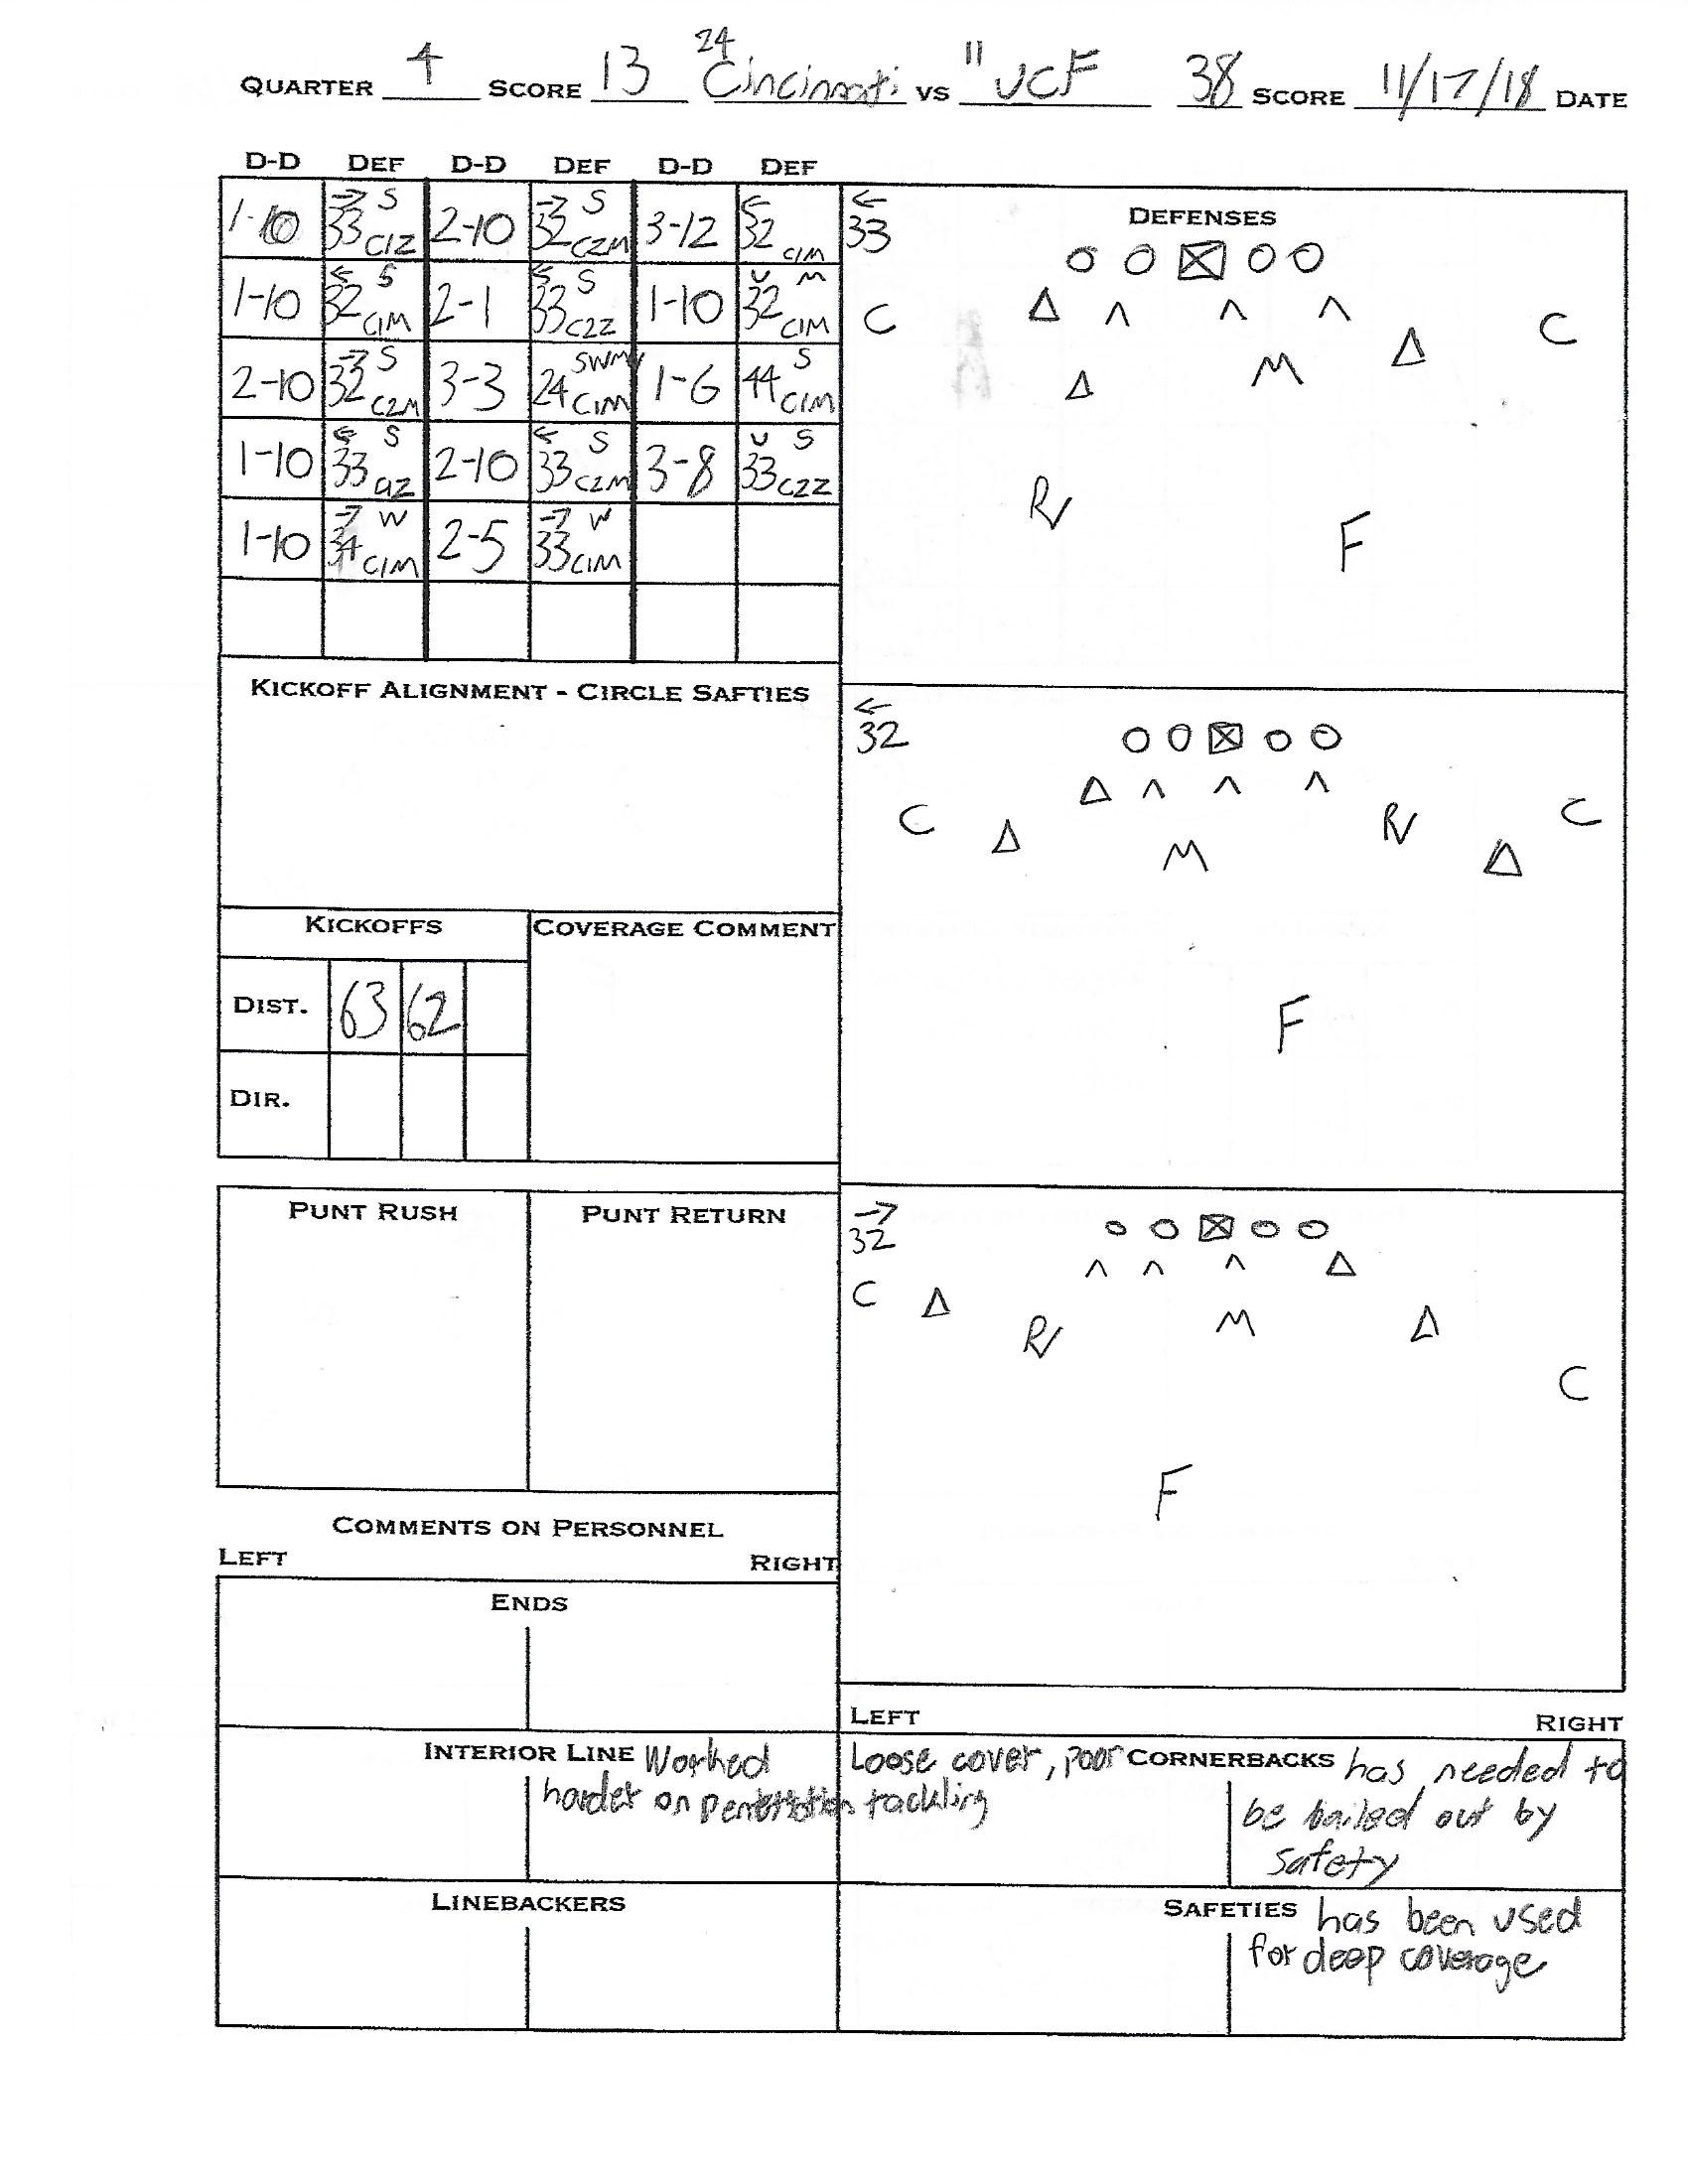 QUARTER 4 SCORE 13 24 Cincinnati VS 11 UCF 38 SCORE 11/17/18 DATE
D-D DEF D-D DEF D-D DEF
1-10 → S 33 C1Z 2-10 → S 32 C2M 3-12 ← 32 C1M
1-10 ← S 32 C1M 2-1 ← S 33 C2Z 1-10 U M 32 C1M
2-10 → S 32 C2M 3-3 SWM 24 C1M 1-6 S 44 C1M
1-10 ← S 33 2-10 ← S 33 C2M 3-8 U S 33 C2Z
1-10 → W 34 C1M 2-5 → W 33 C1M
KICKOFF ALIGNMENT - CIRCLE SAFTIES
KICKOFFS
COVERAGE COMMENT
DIST. 63 62
DIR.
PUNT RUSH PUNT RETURN
COMMENTS ON PERSONNEL
LEFT RIGHT
ENDS
INTERIOR LINE Worked
harder on
LINEBACKERS
← 33
DEFENSES
C C
M
R
F
← 32
C R C
M
F
→ 32
C
R M
C
F
LEFT RIGHT
Loose cover, poor CORNERBACKS has needed to
tackling
be bailed out by
safety
SAFETIES has been used
for deep coverage